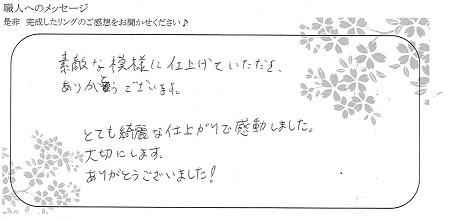 職人へのメッセージ
是非 完成したリングのご感想をお聞かせください♪
素敵な模様に仕上げていただき、
ありがとうございます。
とても綺麗な仕上がりで感動しました。
大切にします。
ありがとうございました!